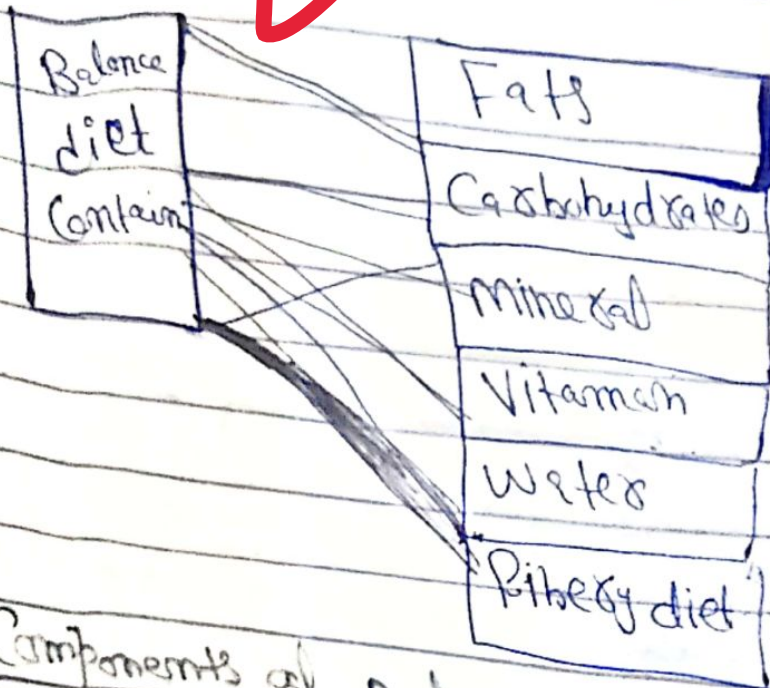 Balance
diet
Contain
Fats
Carbohydrates
Mineral
Vitaman
Water
Fibery diet
Components of